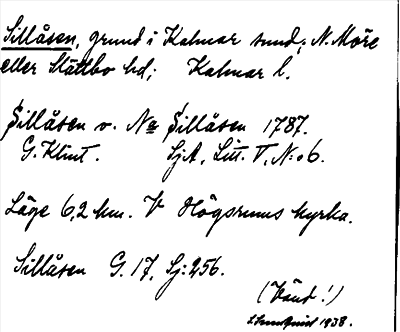 Sillåsen, grund i Kalmar sund; N. Möre
eller Slättbo hd; Kalmar l.
Sillåsen v. Na Sillåsen 1787.
G. Klint. SjA, Litt. V, N:o 6.
Läge 6,2 km. V Högsrums kyrka.
Sillåsen G. 17, Sj: 256.
(Vänd!)
1938.